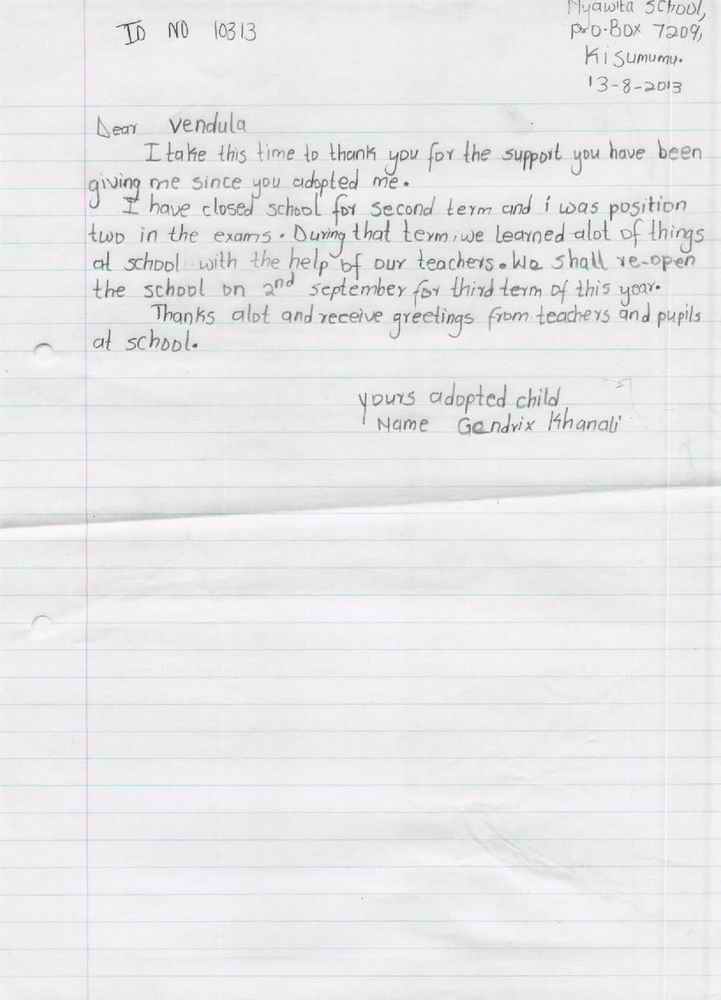 Nyawita School,
ID NO 10313
P.O.Box 7209,
Kisumumu.
13-8-2013
Dear Vendula
I take this time to thank you for the support you have been
giving me since you adopted me.
I have closed school for second term and i was position
two in the exams. During that term, we learned alot of things
at school with the help of our teachers. We shall re-open
the school on 2nd september for third term of this year.
Thanks alot and receive greetings from teachers and pupils
at school.
yours adopted child
Name Gendrix Khanali